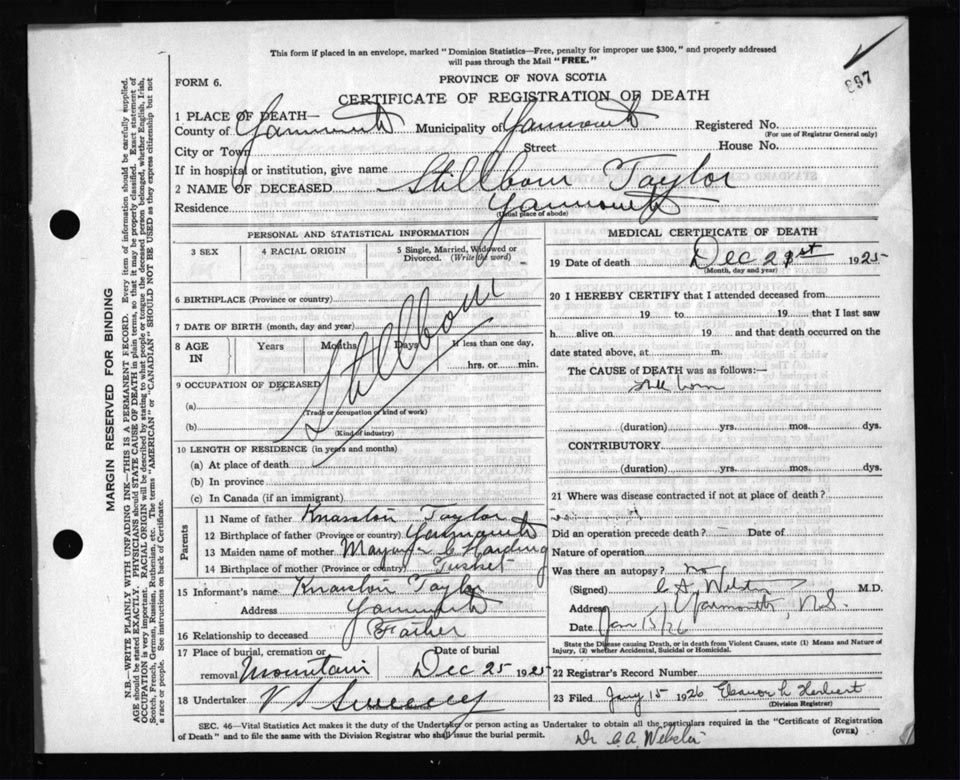 This form if placed in an envelope, marked "Dominion Statistics—Free, penalty for improper use $300," and properly addressed
will pass through the Mail "FREE."
897
FORM 6.
PROVINCE OF NOVA SCOTIA
CERTIFICATE OF REGISTRATION OF DEATH
1 PLACE OF DEATH—
County of Yarmouth Municipality of Yarmouth Registered No.
(For use of Registrar General only)
City or Town Street House No.
If in hospital or institution, give name
2 NAME OF DECEASED Stillborn Taylor
Residence Yarmouth
(Usual place of abode)
PERSONAL AND STATISTICAL INFORMATION
3 SEX 4 RACIAL ORIGIN 5 Single, Married, Widowed or
Divorced. (Write the word)
6 BIRTHPLACE (Province or country)
7 DATE OF BIRTH (month, day and year)
8 AGE IN Years Months Days If less than one day,
hrs. or min.
Stillborn
9 OCCUPATION OF DECEASED
(a)
(Trade or occupation or kind of work)
(b)
(Kind of industry)
10 LENGTH OF RESIDENCE (in years and months)
(a) At place of death
(b) In province
(c) In Canada (if an immigrant)
Parents
11 Name of father Taylor
12 Birthplace of father (Province or country) Yarmouth
13 Maiden name of mother Harding
14 Birthplace of mother (Province or country) Tusket
15 Informant's name Taylor
Address Yarmouth
16 Relationship to deceased Father
17 Place of burial, cremation or Date of burial
removal Mountain Dec 25 1925
18 Undertaker V S Sweeney
MEDICAL CERTIFICATE OF DEATH
19 Date of death Dec 21st 1925
(Month, day and year)
20 I HEREBY CERTIFY that I attended deceased from
19 to 19 that I last saw
h alive on 19 and that death occurred on the
date stated above, at m.
The CAUSE OF DEATH was as follows:—
Still born
(duration) yrs. mos. dys.
CONTRIBUTORY
(duration) yrs. mos. dys.
21 Where was disease contracted if not at place of death?
Did an operation precede death? Date of
Nature of operation
Was there an autopsy? no
(Signed) A Webster M.D.
Address Yarmouth, N.S.
Date Jan 15/26
State the Disease causing Death, or in death from Violent Causes, state (1) Means and Nature of
Injury, (2) whether Accidental, Suicidal or Homicidal.
22 Registrar's Record Number
23 Filed Jany 15 1926 Eleanor L Herbert
(Division Registrar)
SEC. 46—Vital Statistics Act makes it the duty of the Undertaker or person acting as Undertaker to obtain all the particulars required in the "Certificate of Registration
of Death" and to file the same with the Division Registrar who shall issue the burial permit.
(OVER)
Dr A. Webster
MARGIN RESERVED FOR BINDING
N.B.—WRITE PLAINLY WITH UNFADING INK—THIS IS A PERMANENT RECORD. Every item of information should be carefully supplied.
AGE should be stated EXACTLY. PHYSICIANS should STATE CAUSE OF DEATH in plain terms, so that it may be properly classified. Exact statement of
OCCUPATION is very important. RACIAL ORIGIN will be described by stating to what people or tongue the deceased person belonged, whether English, Irish,
Scotch, French, German, Russian, Ruthenian, etc. The terms "AMERICAN" or "CANADIAN" SHOULD NOT BE USED as they express citizenship but not
a race or people. See instructions on back of Certificate.